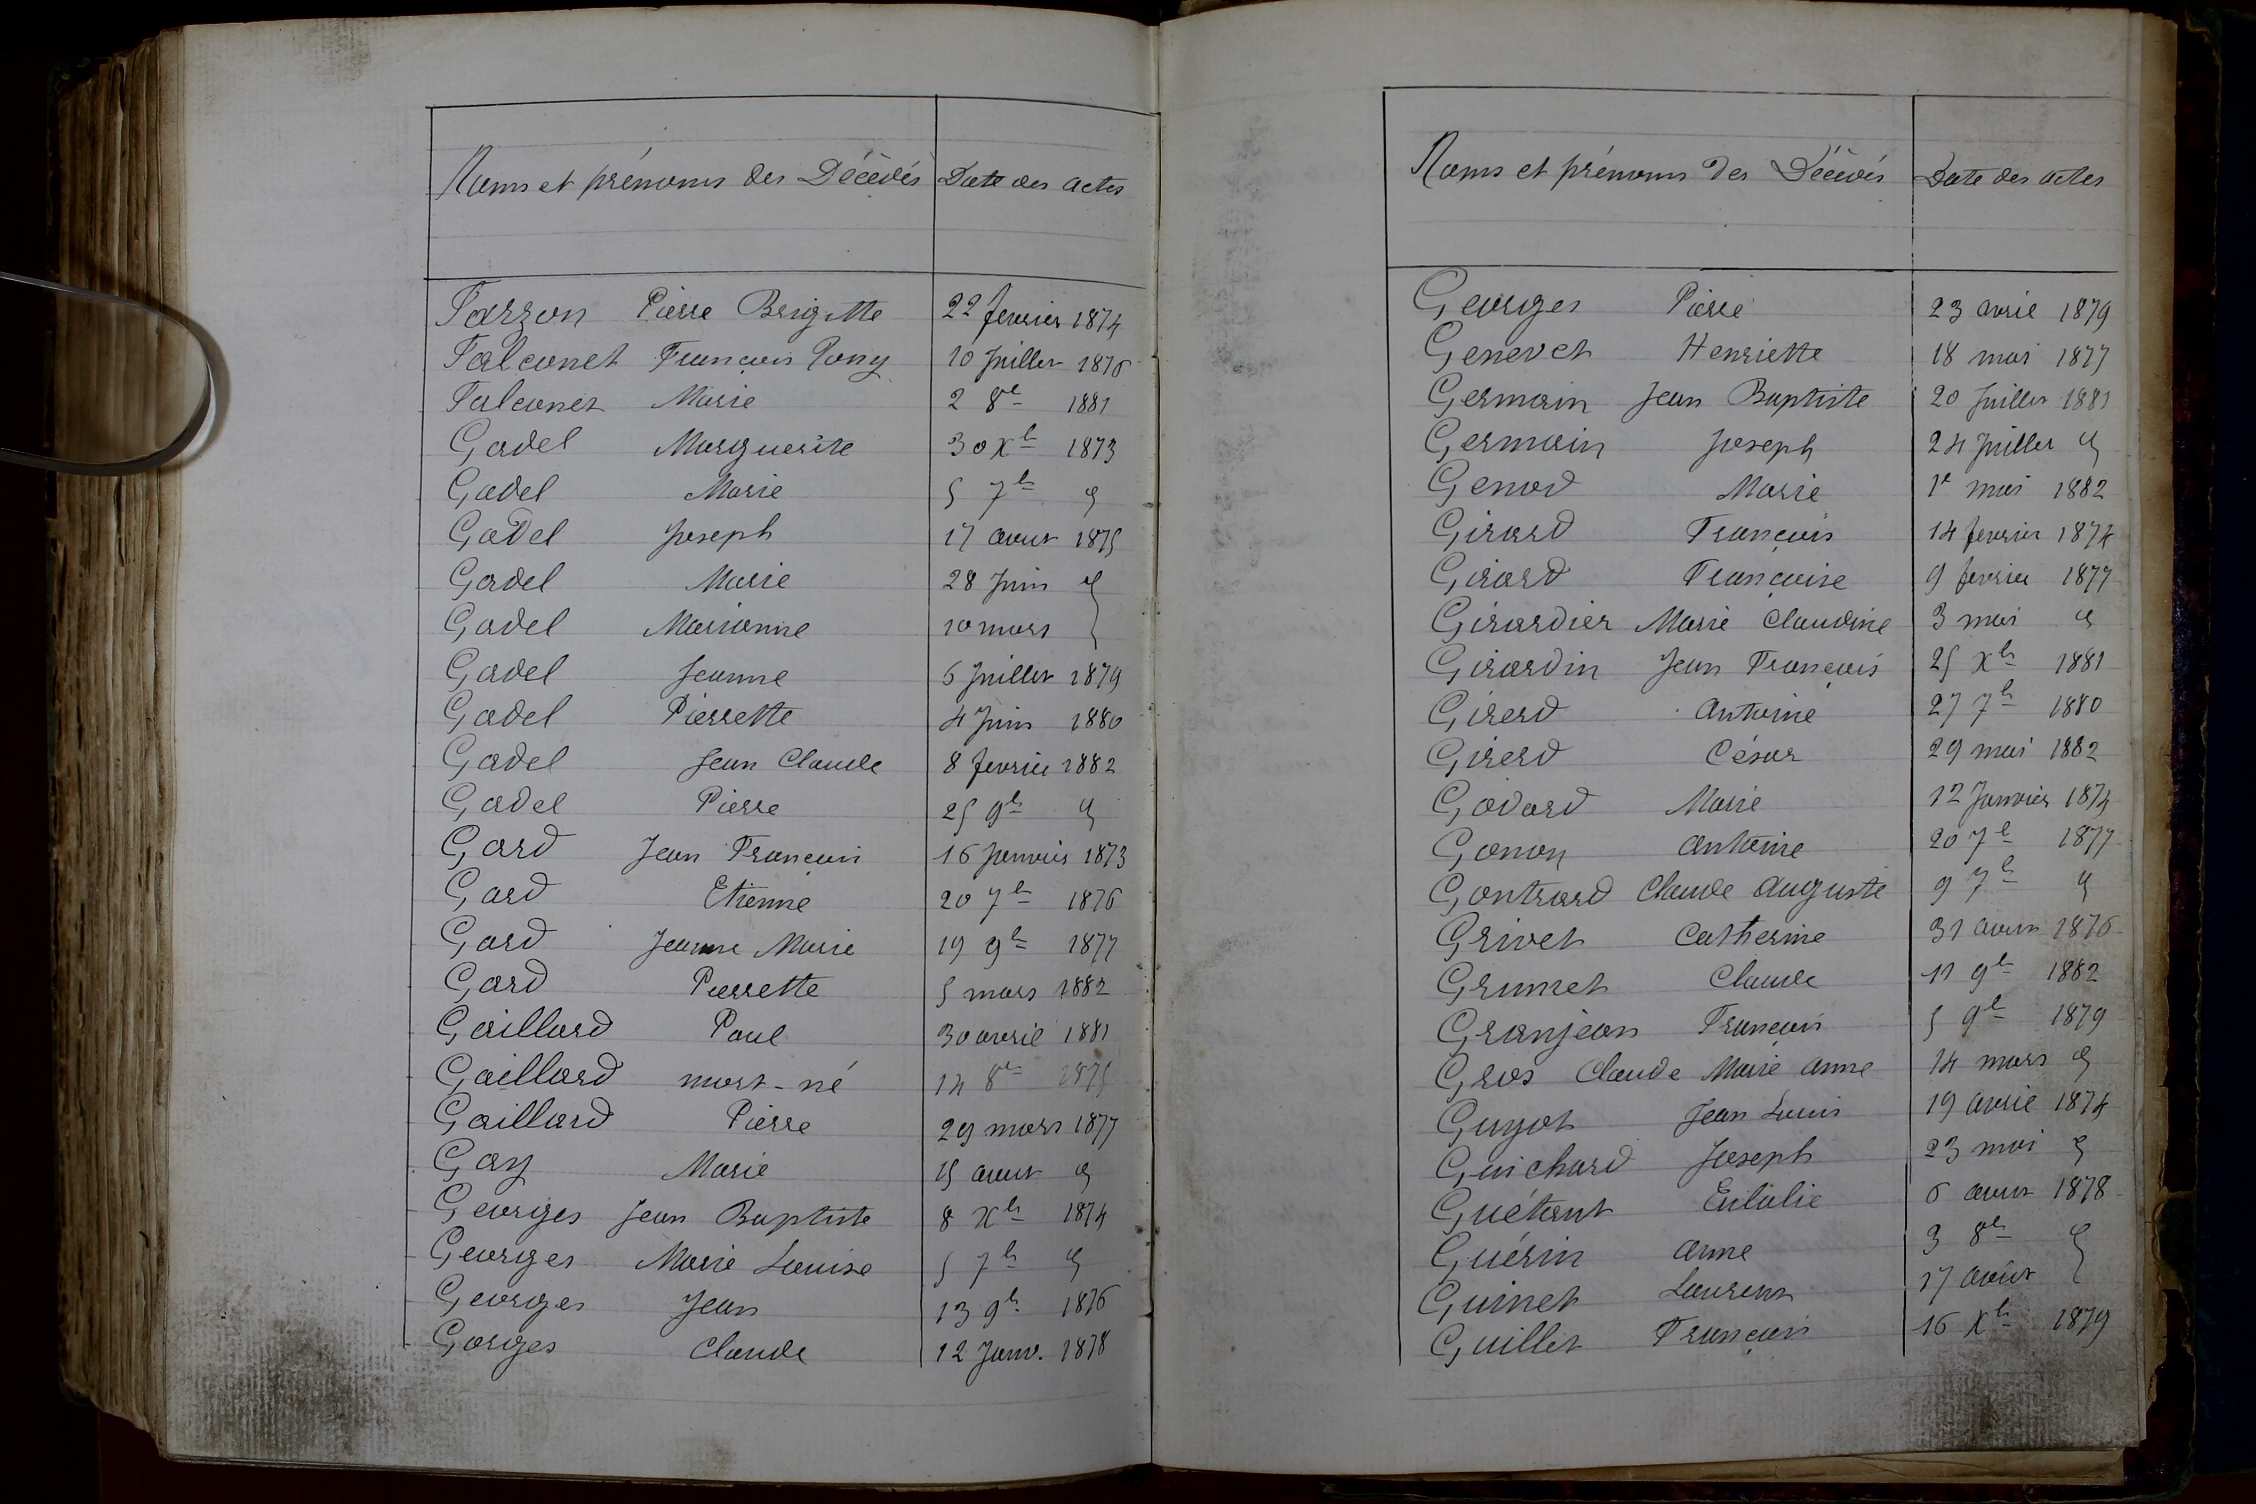 Noms et prénoms des Décédés Date des actes
Farzon Pierre Brigitte 22 fevrier 1874
Falconet François Pony 10 Juillet 1876
Falconet Marie 2 8e 1881
Gadel Marguerite 30 Xbe 1873
Gadel Marie 5 7be "
Gadel Joseph 17 aout 1875
Gadel Marie 28 Juin "
Gadel Marianne 10 mars
Gadel Jeanne 6 Juillet 1879
Gadel Pierrette 4 Juin 1880
Gadel Jean Claude 8 fevrier 1882
Gadel Pierre 25 9be "
Gard Jean François 16 Janvier 1873
Gard Etienne 20 7be 1876
Gard Jeanne Marie 19 9be 1877
Gard Pierrette 5 mars 1882
Gaillard Paul 30 avril 1881
Gaillard mort-né 14 8e 1875
Gaillard Pierre 29 mars 1877
Gay Marie 15 aout "
Georges Jean Baptiste 8 Xbe 1874
Georges Marie Louise 5 7be "
Georges Jean 13 9be 1876
Gorges Claude 12 Janv. 1878
Noms et prénoms des Décédés Date des actes
Georges Pierre 23 avril 1879
Genevet Henriette 18 mai 1877
Germain Jean Baptiste 20 Juillet 1881
Germain Joseph 24 Juillet "
Genod Marie 1e mai 1882
Girard François 14 fevrier 1874
Girard Françoise 9 fevrier 1877
Girardier Marie Claudine 3 mai "
Girardin Jean François 25 Xbe 1881
Girerd Antoine 27 7be 1880
Girerd César 29 mai 1882
Godard Marie 12 Janvier 1874
Gonon Antoine 20 7be 1877
Gontrard Claude Auguste 9 7be "
Grivet Catherine 31 aout 1876
Grumet Claude 11 9be 1882
Granjean François 5 9be 1879
Gros Claude Marie Anne 14 mars "
Guyot Jean Louis 19 avril 1874
Guichard Joseph 23 mai "
Guétant Eulalie 6 aout 1878
Guérin Anne 3 8e "
Guinet Laurent 17 août
Guillet François 16 Xbe 1879